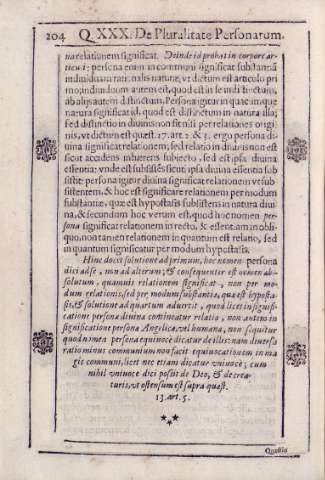 204 Q. XXX. De Pluralitate Personarum.
na relationem significat. Deinde id probat in corpore ar-
ticu i; persona enim in communi significat substantiā
indiuiduā rationalis naturæ, vt dictum est articulo pri
mo; indiuiduum autem est, quod est in se indistinctum,
ab alijs autem distinctum. Persona igitur in quacumque
natura significat id, quod est distinctum in natura illa;
sed distinctio in diuinis non fit nisi per relationes origi-
nis, vt dictum est quæst. 27. art. 2. & 3. ergo persona di-
uina significat relationem; sed relatio in diuinis non est
sicut accidens inhærens subiecto, sed est ipsa diuina
essentia: vnde est subsistēs sicut ipsa diuina essentia sub
sistit: persona igitur diuina significat relationem vt sub-
sistentem, & hoc est significare relationem per modum
substantiæ, quæ est hypostasis subsistens in natura diui
na, & secundum hoc verum est, quod hoc nomen per-
sona significat relationem in recto, & essentiam in obli-
quo, non tamen relationem in quantum est relatio, sed
in quantum significatur per modum hypostasis.
Hinc docet solutione ad primum, hoc nomen persona
dici ad se, non ad alterum; & consequenter est nomen ab-
solutum, quamuis relationem significat, non per mo-
dum relationis, sed per modum substantiæ, quæ est hyposta-
sis, & solutione ad quartum aduertit, quod licet in signifi-
catione persona diuina contineatur relatio, non autem in
significatione persona Angelicæ, vel humanæ, non sequitur
quod nomen persona equiuocè dicatur de illis: nam diuersa
ratio minus communium non facit equiuocationem in ma
gis communi, licet nec etiam dicatur vniuocè; cum
nihil vniuocè dici possit de Deo, & de crea-
turis, vt ostensum est supra quæst.
13. art. 5.
Quæstio